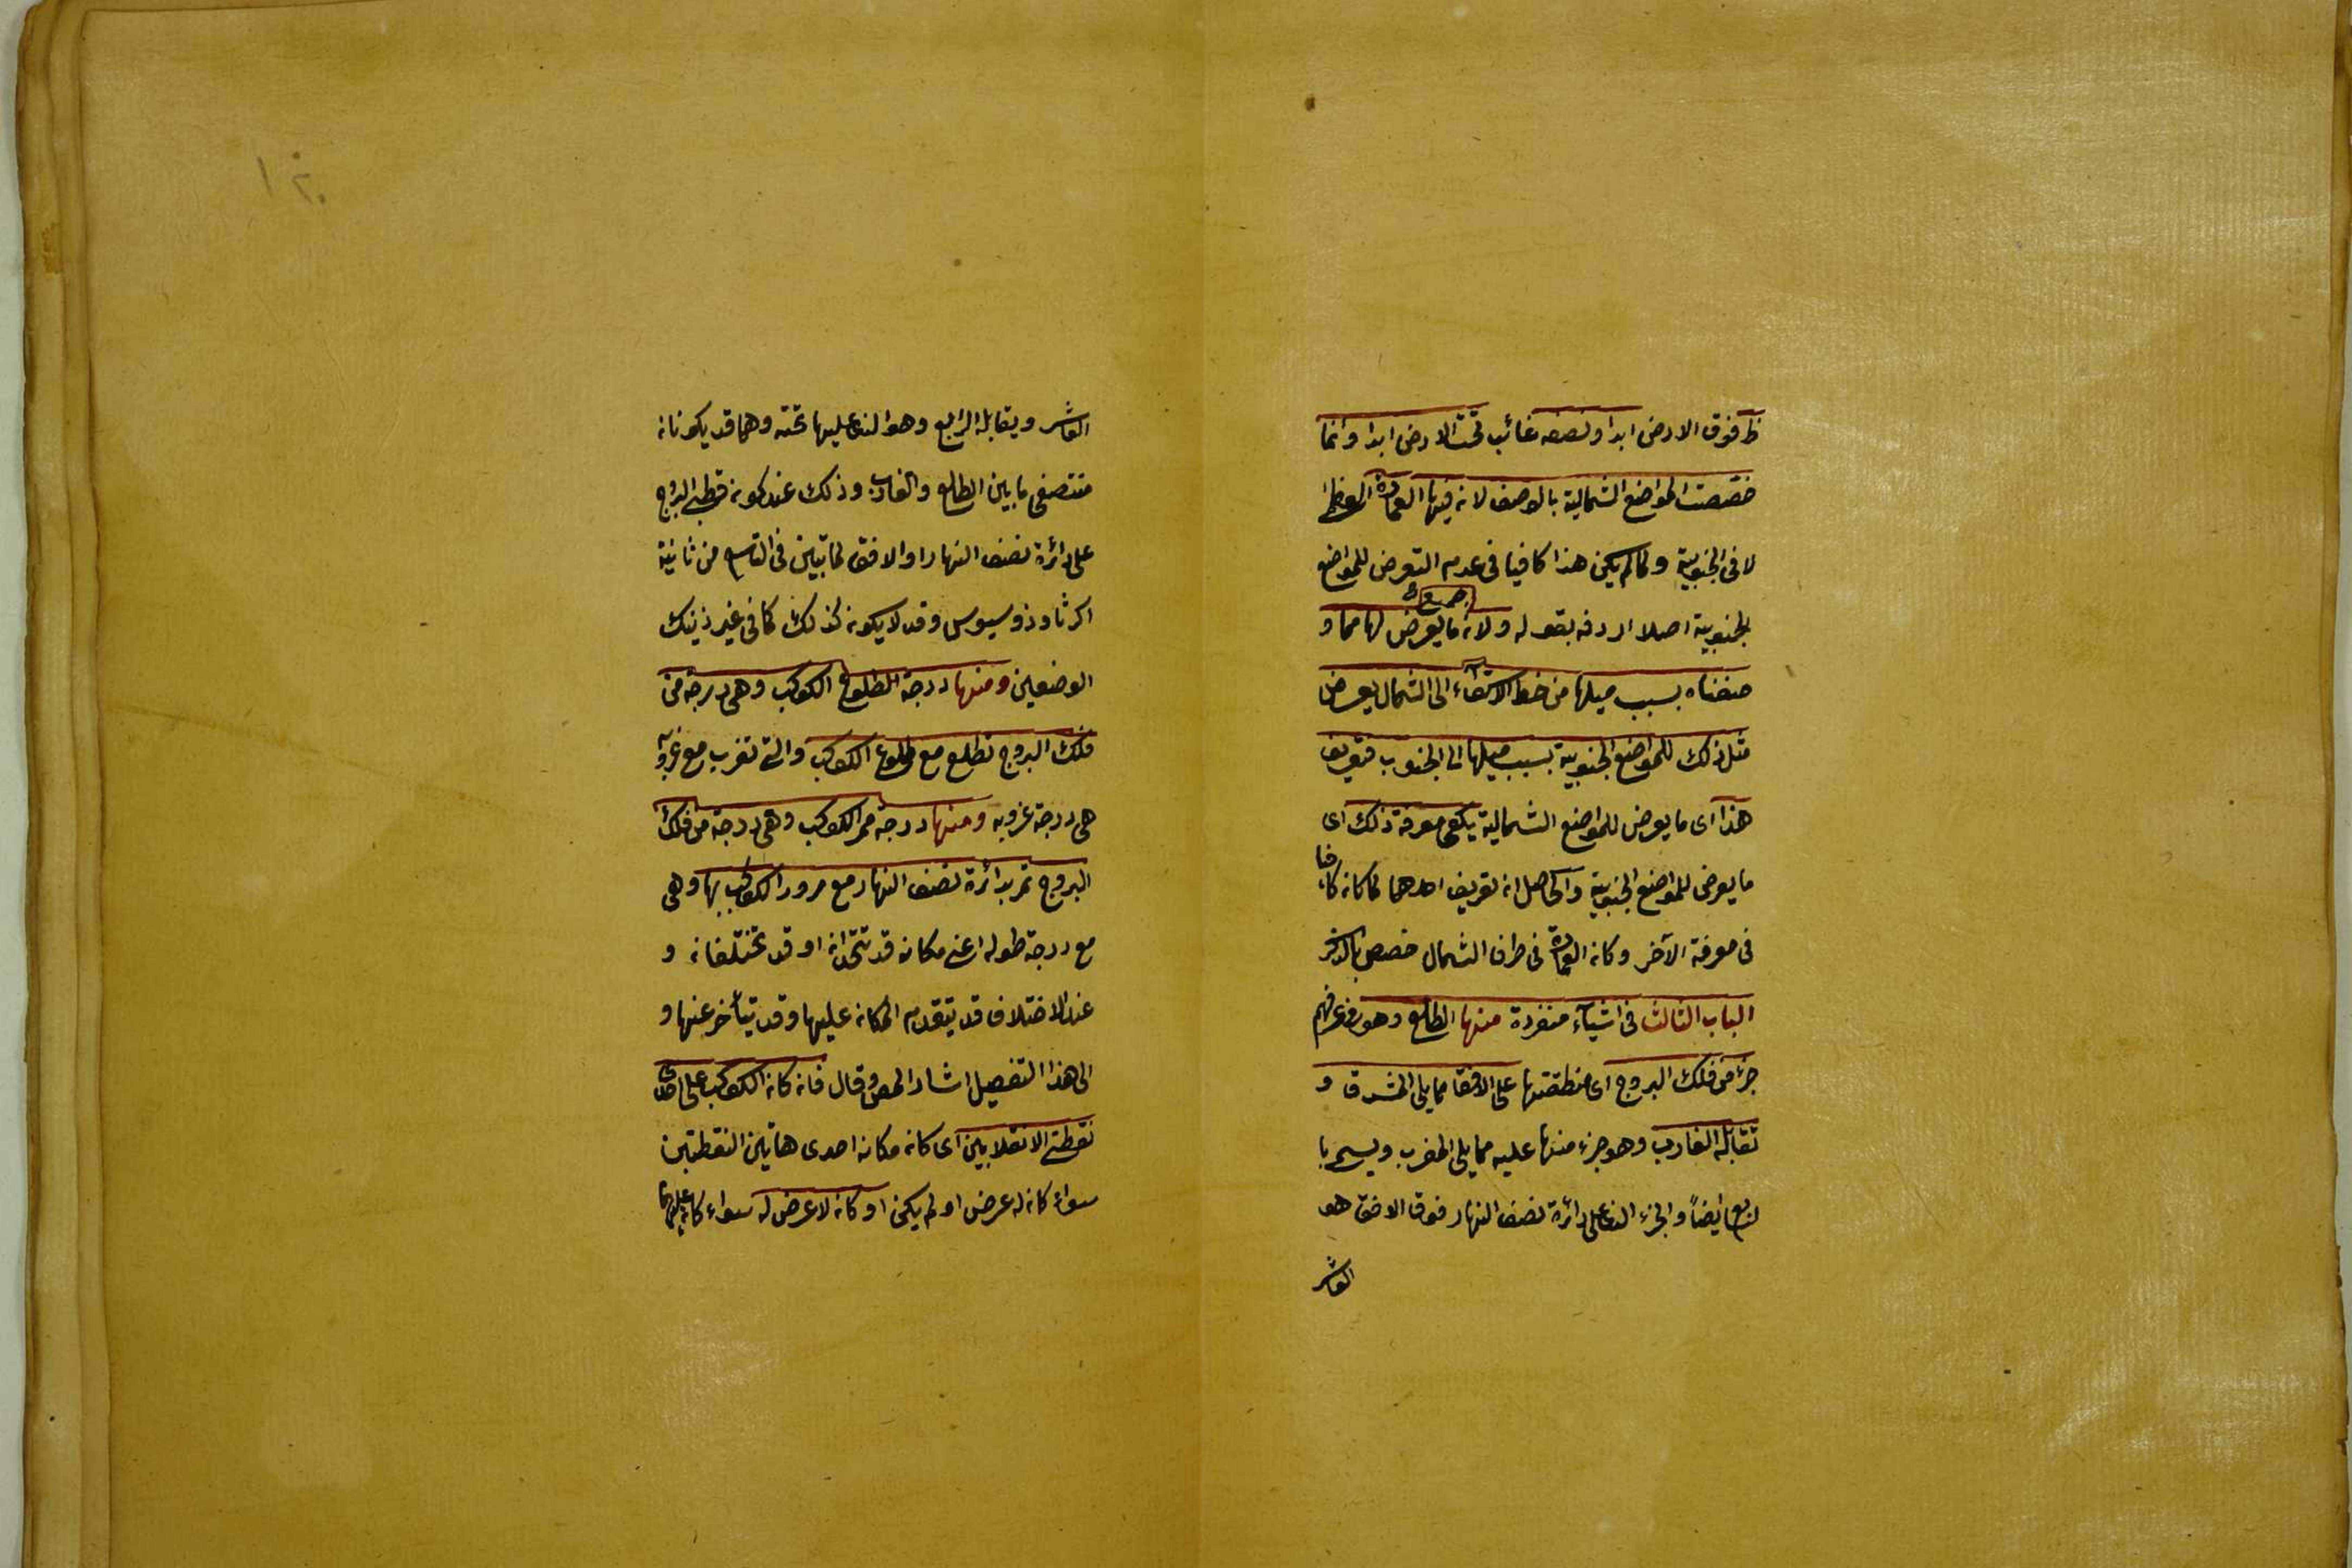 ظ فوق الارض ابدا ونصفه غائب تحت الارض ابدا وانما
خصصت المواضع الشمالية بالوصف لانه فيها العمارة العظمى
لا فى الجنوبية ولما لم يكن هذا كافيا فى عدم التعرض للمواضع
الجنوبية اصلا اردفه بقوله ولانه جميع ما يعرض لها مما و
صفناه بسبب ميلها من خط الاستواء الى الشمال يعرض
مثل ذلك للمواضع الجنوبية بسبب ميلها الى الجنوب فتعريف
هذا اى ما يعرض للمواضع الشمالية يكفى معرفة ذلك اى
ما يعرض للمواضع الجنوبية والحاصل انه تعريف احدهما لما كانه كافيا
فى معرفة الآخر وكانه العمارة فى طرف الشمال خصص بالذكر
الباب الثالث فى اشيآء منفردة منها الطالع وهو فى عرفهم
جزء من فلك البروج اى منطقتها على الافق مما يلى المشرق و
تقابله الغارب وهو جزء منها عليه مما يلى المغرب ويسمى با
لسابع ايضاً والجزء الذى على دائرة نصف النهار فوق الافق هو
العاشر
العاشر ويقابله الرابع وهو الذى عليها تحته وهما قد يكونانه
منتصفى ما بين الطالع والغارب وذلك عند كونه قطبى البروج
على دائرة نصف النهار او الافق لما تبين فى التاسع من ثانية
اكر ثاوذوسيوس وقد لا يكونه كذلك كما فى غير ذينك
الوضعين ومنها درجة الطلوع الكوكب وهى درجة من
فلك البروج تطلع مع طلوع الكوكب والتى تغرب مع غروبه
هى درجة غروبه ومنها درجة ممر الكوكب وهى درجة من فلك
البروج تمر بدائرة نصف النهار مع مرور الكوكب بها وهى
مع درجة طوله اعنى مكانه قد تتحدانه او قد تختلفانه و
عند الاختلاف قد يتقدم المكانه عليها وقد يتأخر عنها و
الى هذا التفصيل اشار المص وقال فانه كانه الكوكب على احدى
نقطتى الانقلابين اى كانه مكانه احدى هاتين النقطتين
سواء كانه له عرض او لم يكن او كانه لا عرض له سواء كانه عليهما